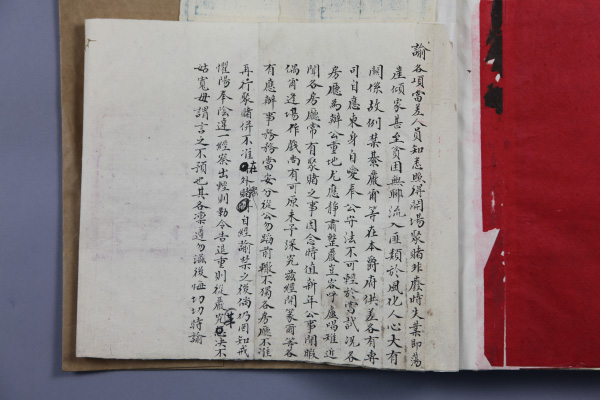 諭各項當差人員知悉照得開場聚賭非廢時失業即蕩
產傾家甚至貧困無聊流入匪類於風化人心大有
關係故例禁綦嚴爾等在本爵府供差各有專
司自應束身自愛奉公守法不可輕於嘗試況各
房廳為辦公重地尤應靜肅整嚴豈容呼盧喝雉近
聞各房廳常有聚賭之事因念時值新年公事閒暇
偶爾逢場作戲尚有可原未予深究茲經開篆爾等各
有應辦事務務當安分從公勿蹈前轍不獨各房廳不准
再行聚賭併不准在外賭自經諭禁之後倘仍罔知戒
懼陽奉陰違一經察出輕則勒令告退重則從嚴究革決不
姑寬毋謂言之不預也其各凜遵勿滋後悔切切特諭